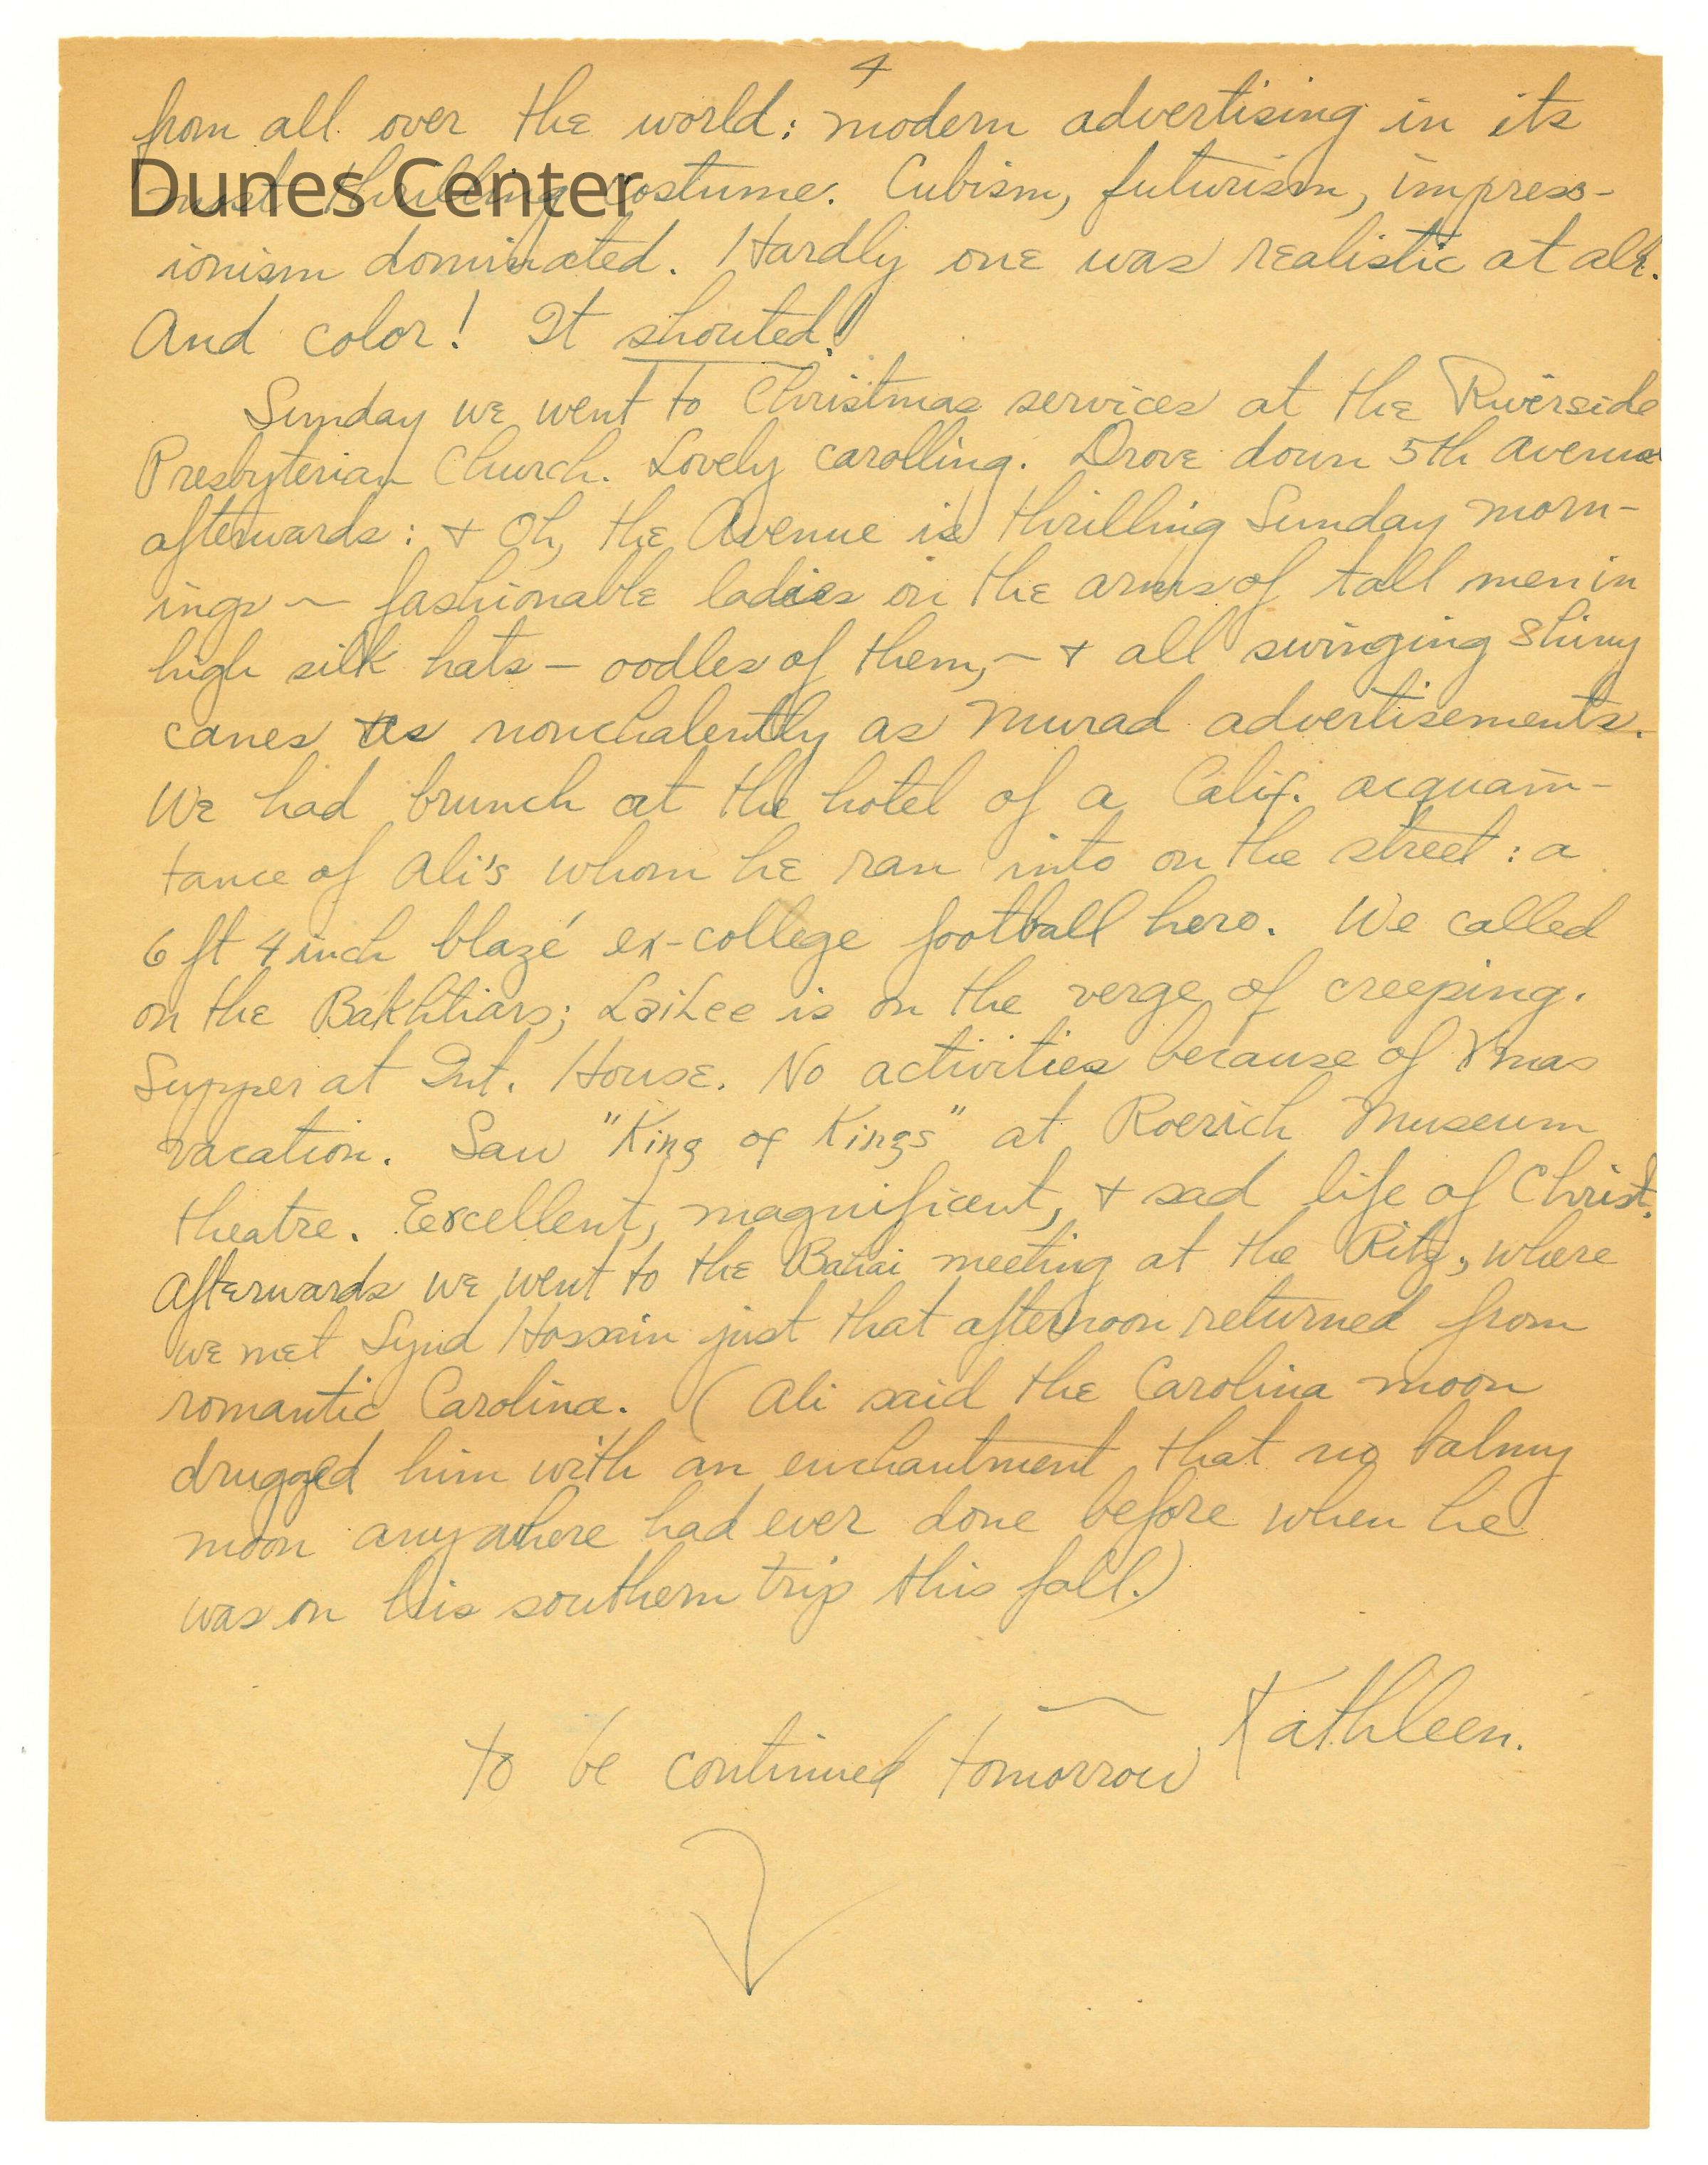 4
from all over the world: modern advertising in its
Dunes Center
most thrilling costume. Cubism, futurism, impress-
ionism dominated. Hardly one was realistic at all.
And color! It shouted!
Sunday we went to Christmas services at the Riverside
Presbyterian Church. Lovely carolling. Drove down 5th Avenue
afterwards: + Oh, the Avenue is thrilling Sunday morn-
ings ~ fashionable ladies on the arms of tall men in
high silk hats - oodles of them, ~ + all swinging shiny
canes as nonchalently as Murad advertisements.
We had brunch at the hotel of a Calif. acquain-
tance of Ali's whom he ran into on the street: a
6 ft 4 inch blazé ex-college football hero. We called
on the Bakhtiars; LaiLee is on the verge of creeping.
Supper at Int. House. No activities because of Xmas
vacation. Saw "King of Kings" at Roerich Museum
theatre. Excellent, magnificent, + sad life of Christ.
Afterwards we went to the Bahai meeting at the Ritz, where
we met Syud Hossain just that afternoon returned from
romantic Carolina. (Ali said the Carolina moon
drugged him with an enchantment that no balmy
moon anywhere had ever done before when he
was on his southern trip this fall.)
Kathleen.
to be continued tomorrow